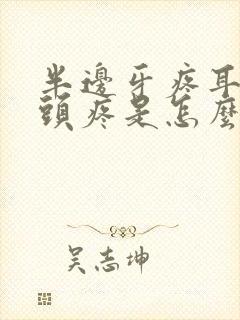 半邊牙疼耳
頭疼是怎麼
吴志坤